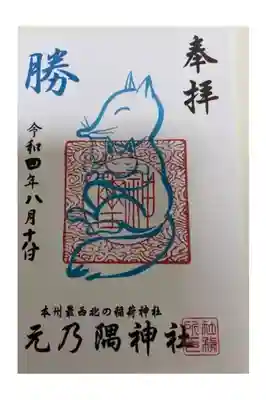 奉拝
勝
令和四年八月十付
本州最西北の稲荷神社
元乃隅神社